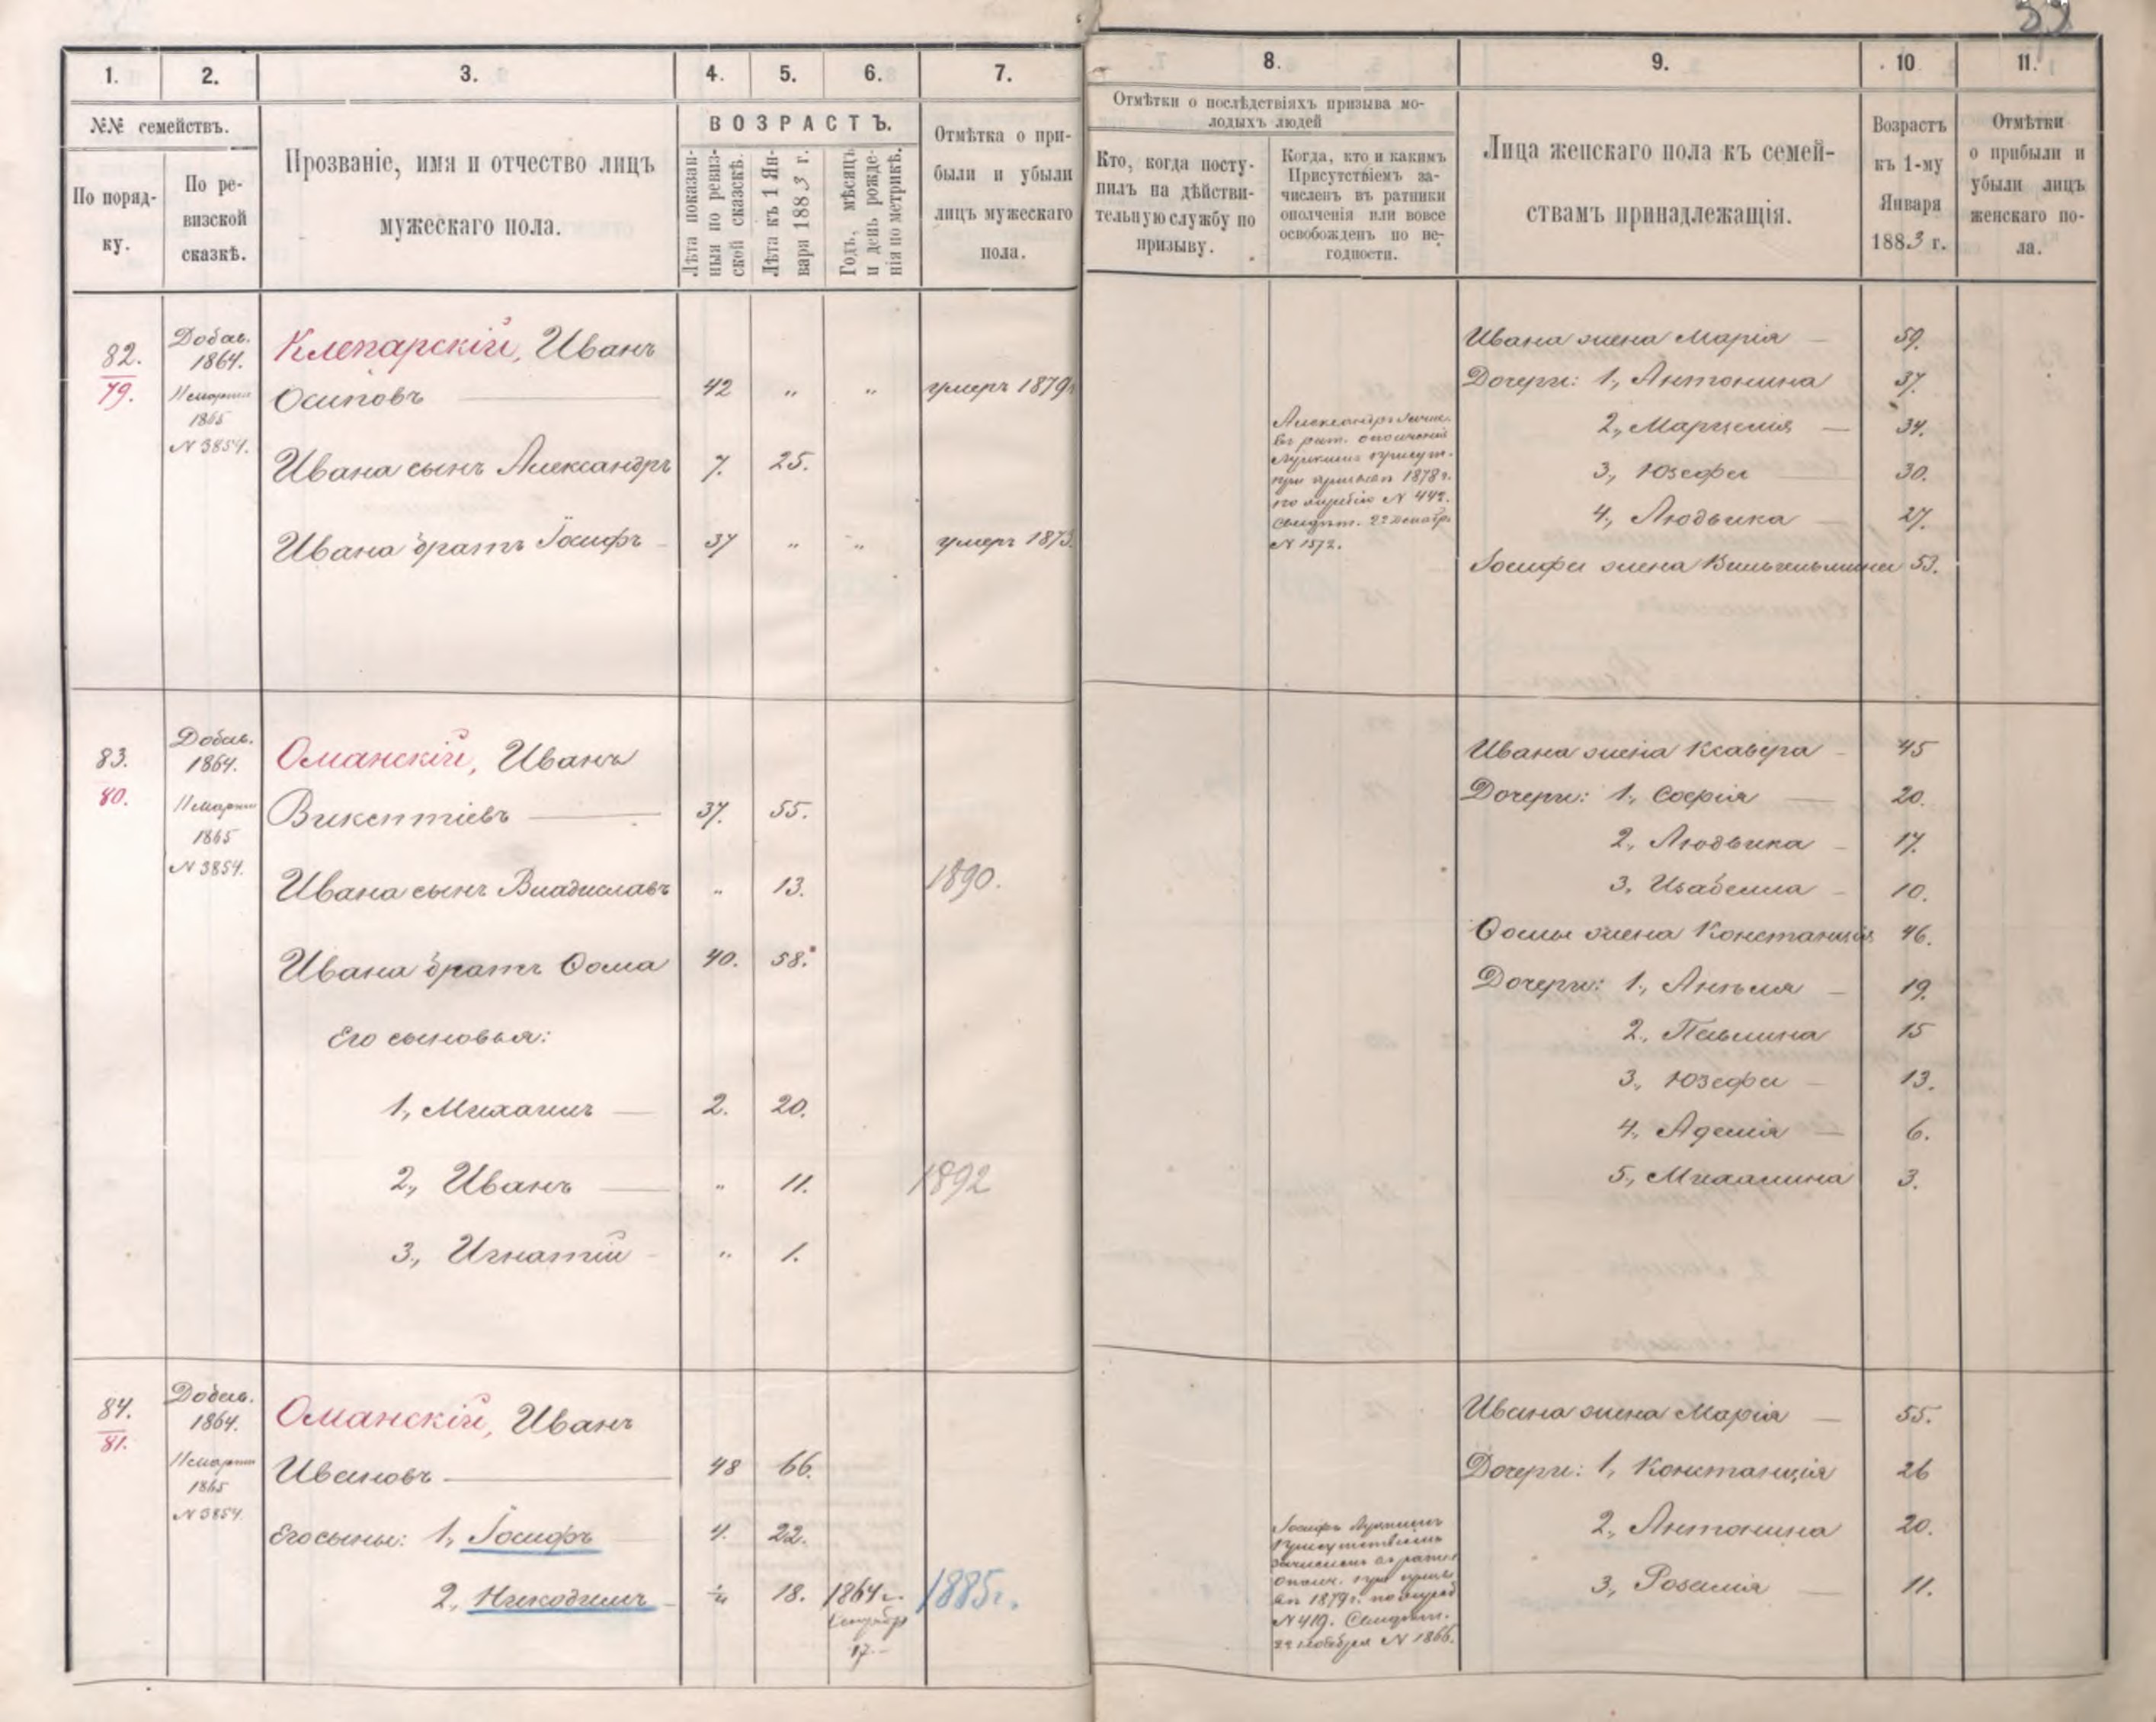 39
1.
2.
3.
4.
5.
6.
7.
8.
9.
10
11.
№№ семействъ.
По поряд-
ку.
По ре-
визской
сказкѣ.
Прозваніе, имя и отчество лицъ
мужескаго пола.
ВОЗРАСТЪ.
Лѣта показан-
ныя по ревиз-
ской сказкѣ.
Лѣта къ 1 Ян-
варя 1883 г.
Годъ, мѣсяцъ
и день рожде-
нія по метрикѣ.
Отмѣтка о при-
были и убыли
лицъ мужескаго
пола.
Отмѣтки о послѣдствіяхъ призыва мо-
лодыхъ людей
Кто, когда посту-
пилъ на дѣйстви-
тельную службу по
призыву.
Когда, кто и какимъ
Присутствіемъ за-
численъ въ ратники
ополченія или вовсе
освобожденъ по не-
годности.
Лица женскаго пола къ семей-
ствамъ принадлежащія.
Возрастъ
къ 1-му
Января
1883 г.
Отмѣтки
о прибыли и
убыли лицъ
женскаго по-
ла.
82.
79.
Добав.
1864.
11 марта
1865
№ 3854.
Клепарскій, Иванъ
Осиповъ 42 „ „ умеръ 1879
Ивана сынъ Александръ 7. 25.
Ивана братъ Іосифъ 37 „ „ умеръ 1873
Александръ
въ рат. ополченія
присут.
при призывѣ 1878 г.
по жребію № 442.
Свидѣт. 22 Декабр.
№ 1572.
Ивана жена Марія 59.
Дочери: 1., Антонина 37.
2., Марцелія 34.
3., Юзефа 30.
4., Людвика 27.
Іосифа жена Вильгельмина 53.
83.
80.
Добав.
1864.
11 марта
1865
№ 3854.
Оманскій, Иванъ
Викентіевъ 37. 55.
Ивана сынъ Владиславъ „ 13. 1890.
Ивана братъ Ѳома 40. 58.
Его сыновья:
1., Михаилъ 2. 20.
2., Иванъ „ 11. 1892
3., Игнатій „ 1.
Ивана жена Ксавѣра 45
Дочери: 1., Софія 20.
2., Людвика 17.
3., Изабелла 10.
Ѳомы жена Констанція 46.
Дочери: 1., Анѣля 19.
2., Павлина 15
3., Юзефа 13.
4., Аделія 6.
5., Михалина 3.
84.
81.
Добав.
1864.
11 марта
1865
№ 3854.
Оманскій, Иванъ
Ивановъ 48 66.
Его сыны: 1., Іосифъ 4. 22.
2., Никодимъ 18. 1864 г. 1885 г.
17.
Іосифъ Луцкимъ
Присутствіемъ
зачисленъ въ ратн.
ополч. при призы-
вѣ 1879 г. по жреб.
№ 419. Свидѣт.
22 ноября № 1866.
Ивана жена Марія 55.
Дочери: 1., Констанція 26
2., Антонина 20.
3., Розалія 11.